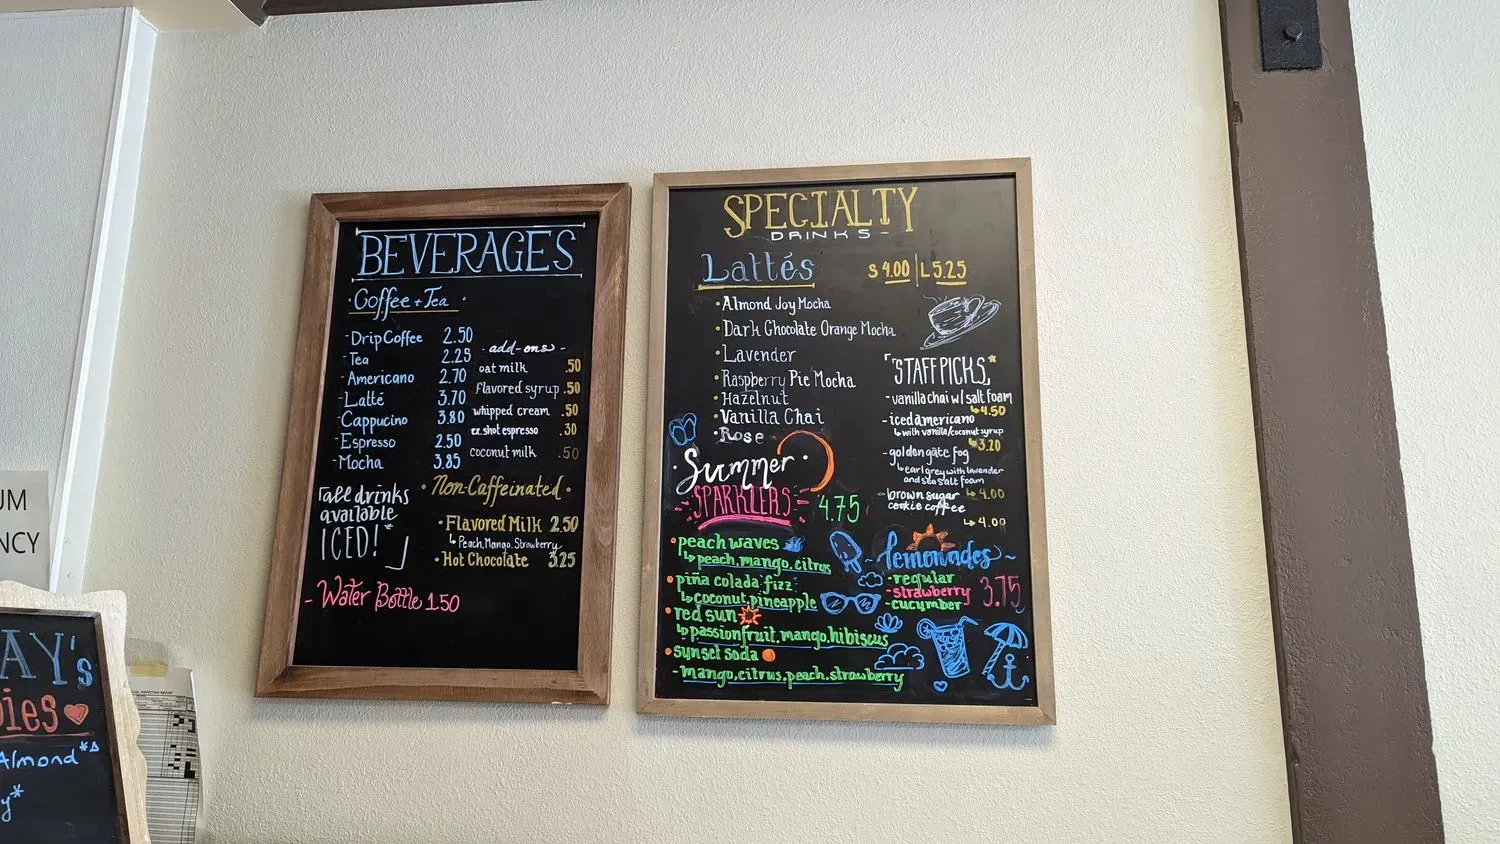 BEVERAGES
Coffee + Tea
- Drip Coffee 2.50
- Tea 2.25
- Americano 2.70
- Latté 3.70
- Cappucino 3.80
- Espresso 2.50
- Mocha 3.85
- add-ons -
oat milk .50
flavored syrup .50
whipped cream .50
ex.shot espresso .30
coconut milk .50
「all drinks
available
ICED!*」
• Non-Caffeinated •
• Flavored Milk 2.50
↳ Peach, Mango, Strawberry
• Hot Chocolate 3.25
- Water Bottle 1.50
SPECIALTY
DRINKS -
Lattés S 4.00 | L 5.25
• Almond Joy Mocha
• Dark Chocolate Orange Mocha
• Lavender
• Raspberry Pie Mocha
• Hazelnut
• Vanilla Chai
• Rose
「STAFF PICKS」*
- vanilla chai w/ salt foam
↳ 4.50
- iced americano
↳ with vanilla/coconut syrup
↳ 3.20
- golden gate fog
↳ earl grey with lavender
and sea salt foam
↳ 4.00
- brown sugar
cookie coffee
↳ 4.00
• Summer •
SPARKLERS 4.75
• peach waves
↳ peach, mango, citrus
• piña colada fizz
↳ coconut, pineapple
• red sun
↳ passionfruit, mango, hibiscus
• sunset soda
- mango, citrus, peach, strawberry
~ lemonades ~
- regular
- strawberry 3.75
- cucumber
UM
NCY
AY's
ies
Almond*
y*